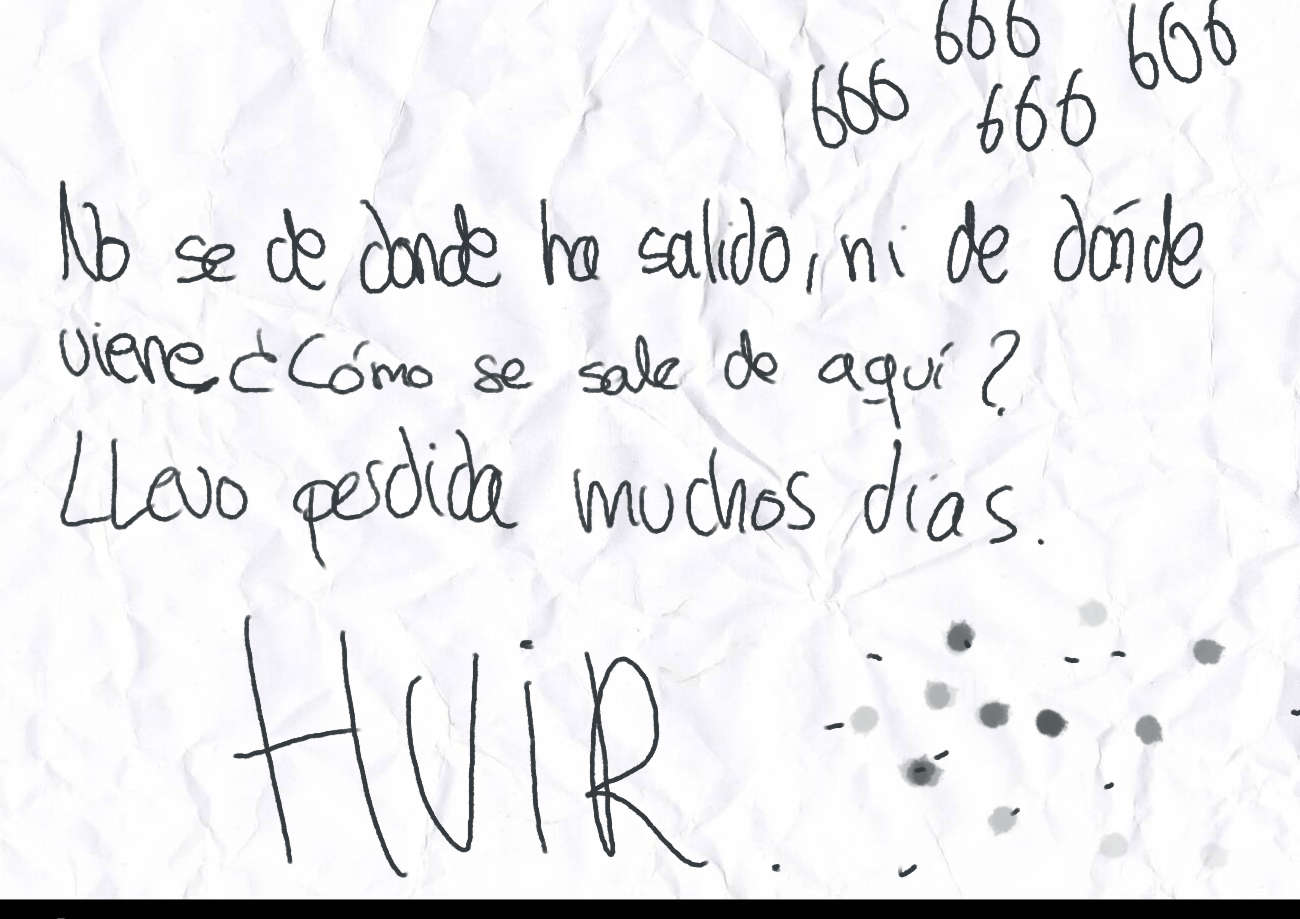 666 606
666 666
No se de donde ha salido, ni de dónde
viene ¿Cómo se sale de aquí?
LLevo perdida muchos días.
HUiR